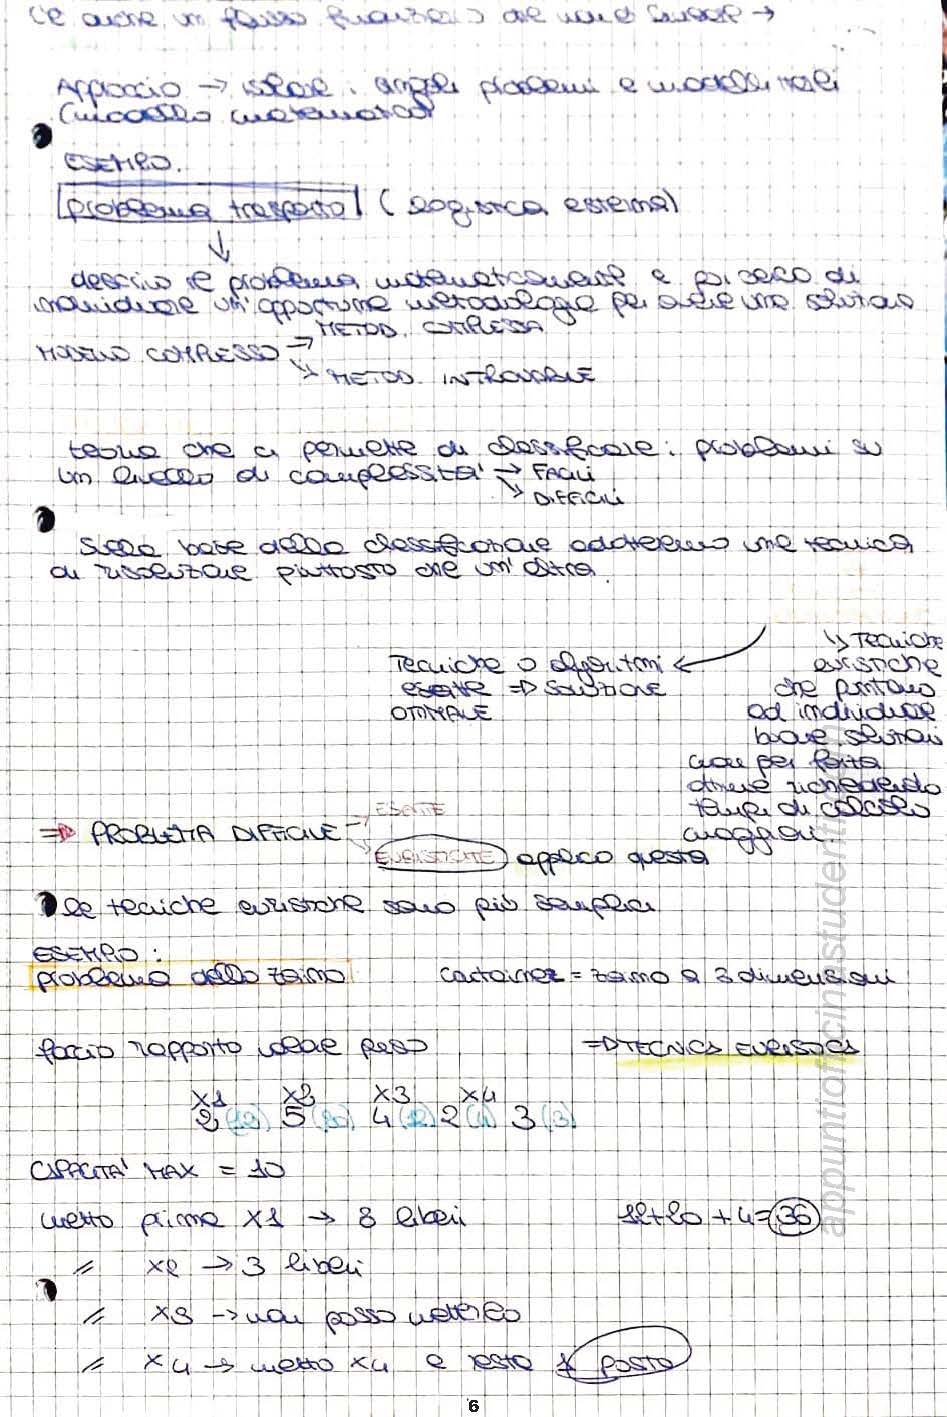 C'è anche un flusso finanziario che non è →
Approccio → isolare i singoli problemi e modellizzarli
(modello matematico)
ESEMPIO.
problema trasporto (logistica esterna)
descrivo il problema matematicamente e poi cerco di
individuare un'opportuna metodologia per avere una soluzione
METOD. COMPLESSA
MODELLO COMPLESSO →
↘ METOD. INTROVABILE
teoria che ci permette di classificare i problemi su
un livello di complessità → FACILI
↘ DIFFICILI
Sulla base della classificazione adotteremo una tecnica
di risoluzione piuttosto che un'altra.
↘ Tecniche
euristiche
che puntano
ad individuare
buone soluzioni
non per forza
ottime richiedendo
tempi di calcolo
maggiori.
Tecniche o algoritmi ←
esatte => SOLUZIONE
OTTIMALE
=> PROBLEMA DIFFICILE → ESATTE
↘ EURISTICHE applico questa
le tecniche euristiche sono più semplici
ESEMPIO:
problema dello zaino container = zaino a 3 dimensioni
faccio rapporto valore peso => TECNICA EURISTICA
x1 x2 x3 x4
2 (12) 5 (20) 4 (12) 2 (4) 3 (3)
CAPACITA' MAX = 10
metto prima x1 → 8 liberi 12+20+4=36
// x2 → 3 liberi
// x3 → non posso metterlo
// x4 → metto x4 e resta 1 posto
6
appuntiofficinastudenti.com